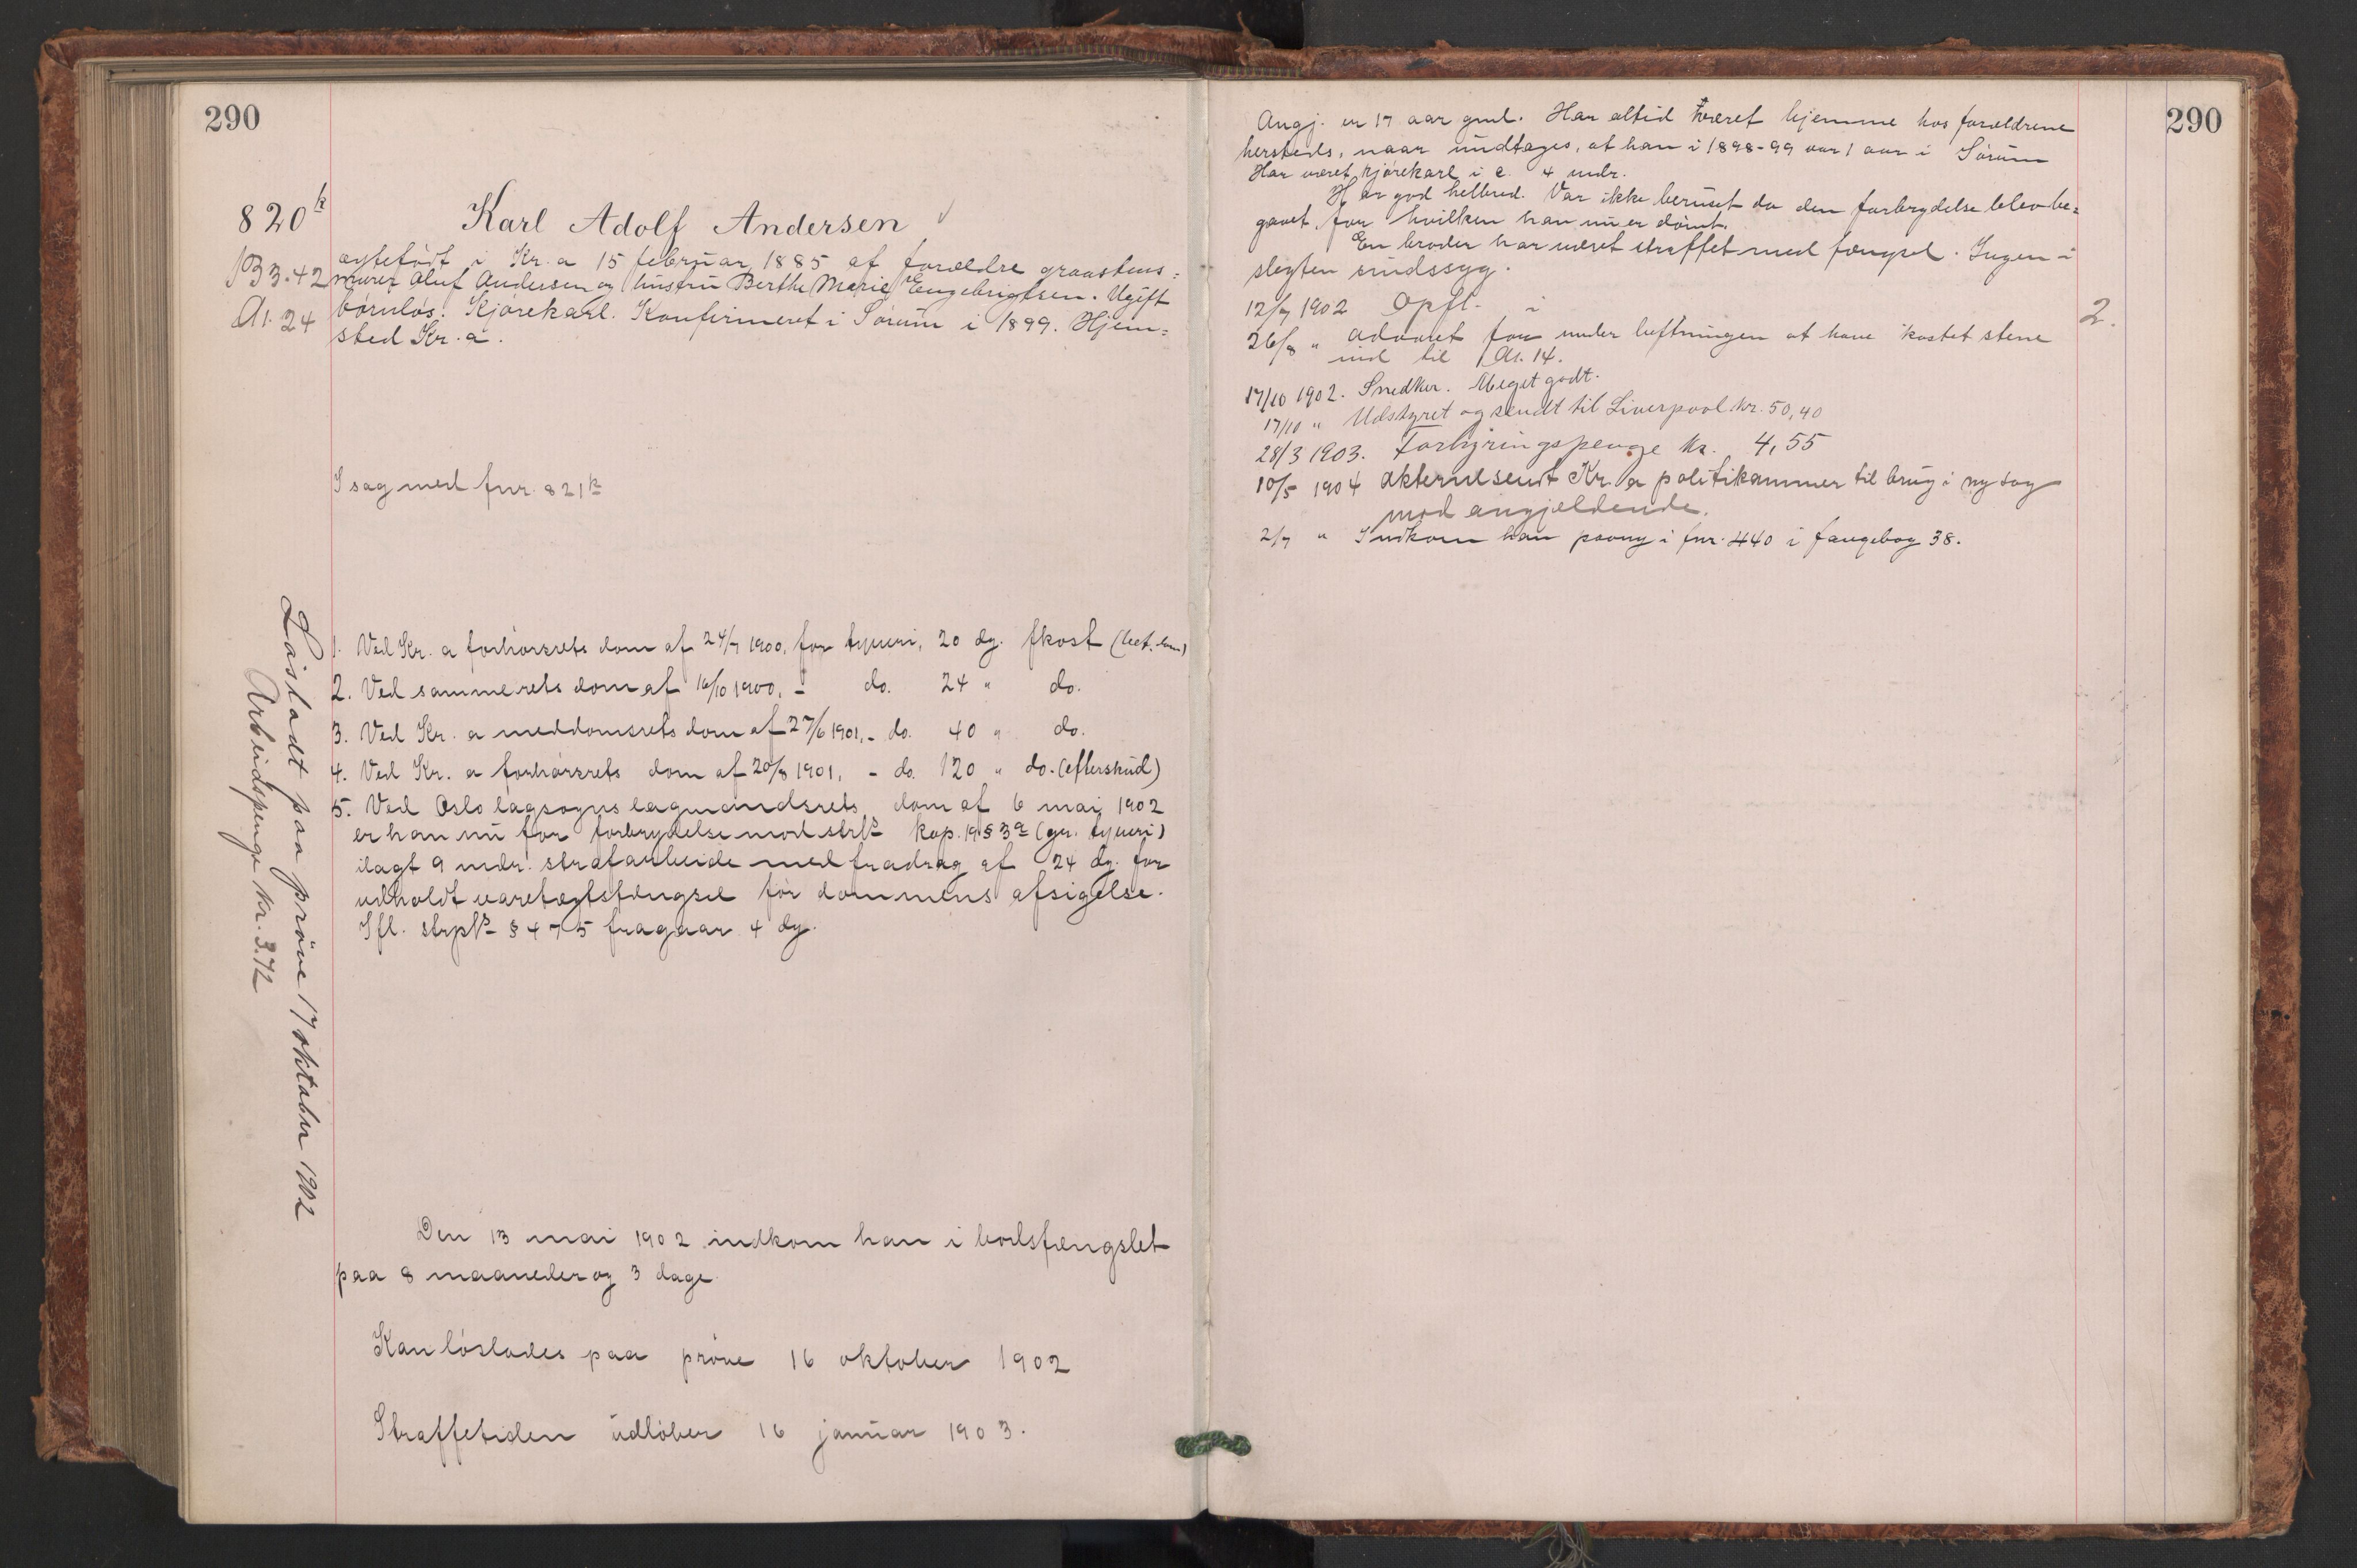 290
820k
B3.42
A1.24
Karl Adolf Andersen
ægtefødt i Kr.a 15 februar 1885 af forældre graastens=
murer Oluf Andersen og hustru Berthe Marie Engebrigtsen. Ugift
børnløs. Kjørekarl. Konfirmeret i Sørum i 1899. Hjem=
sted Kr.a.
I sag med fnr. 821k
1. Ved Kr. a forhørsrets dom af 24/7 1900, for tyveri, 20 dg. fkost (bet. dom)
2. Ved sammerets dom af 16/10 1900, - do. 24 " do.
3. Ved Kr. a meddomsrets dom af 27/6 1901, - do. 40 " do.
4. Ved Kr. a forhørsrets dom af 20/8 1901, - do. 120 " do. (efterskud)
5. Ved Oslo lagsogns lagmandsrets dom af 6 mai 1902
er han nu for forbrydelse mod strl. kap. 19 § 3a (gr. tyveri)
ilagt 9 mdr. strafarbeide med fradrag af 24 dg. for
udholdt varetægtsfængsel før dommens afsigelse.
Ifl. strpl. § 475 fragaar 4 dg.
Løsladt paa prøve 17 oktober 1902
Arbeidspenge Kr. 3.72
Den 13 mai 1902 indkom han i bodsfængslet
paa 8 maaneder og 3 dage
Kan løslades paa prøve 16 oktober 1902
Straffetiden udløber 16 januar 1903.
290
Angj. er 17 aar gml. Har altid været hjemme hos forældrene
hersteds, naar undtages, at han i 1898-99 var 1 aar i Sørum
Har været kjørekarl i c. 4 mdr.
Har god helbred. Var ikke beruset da den forbrydelse blev be=
gaaet, for hvilken han nu er dømt.
En broder har været straffet med fængsel. Ingen i
slegten sindssyg.
12/7 1902 Opfl. i 2.
26/8 " advaret for under luftningen at have kastet stene
ind til A1. 14.
17/10 1902. Snedker. Meget godt.
17/10 " Udstyret og sendt til Liverpool Kr. 50,40
28/3 1903. Forhyringspenge Kr. 4,55
10/5 1904 akterne sendt Kr. a politikammer til brug i ny sag
mod angjældende.
2/7 " Indkom han paany i fnr. 440 i fangebog 38.